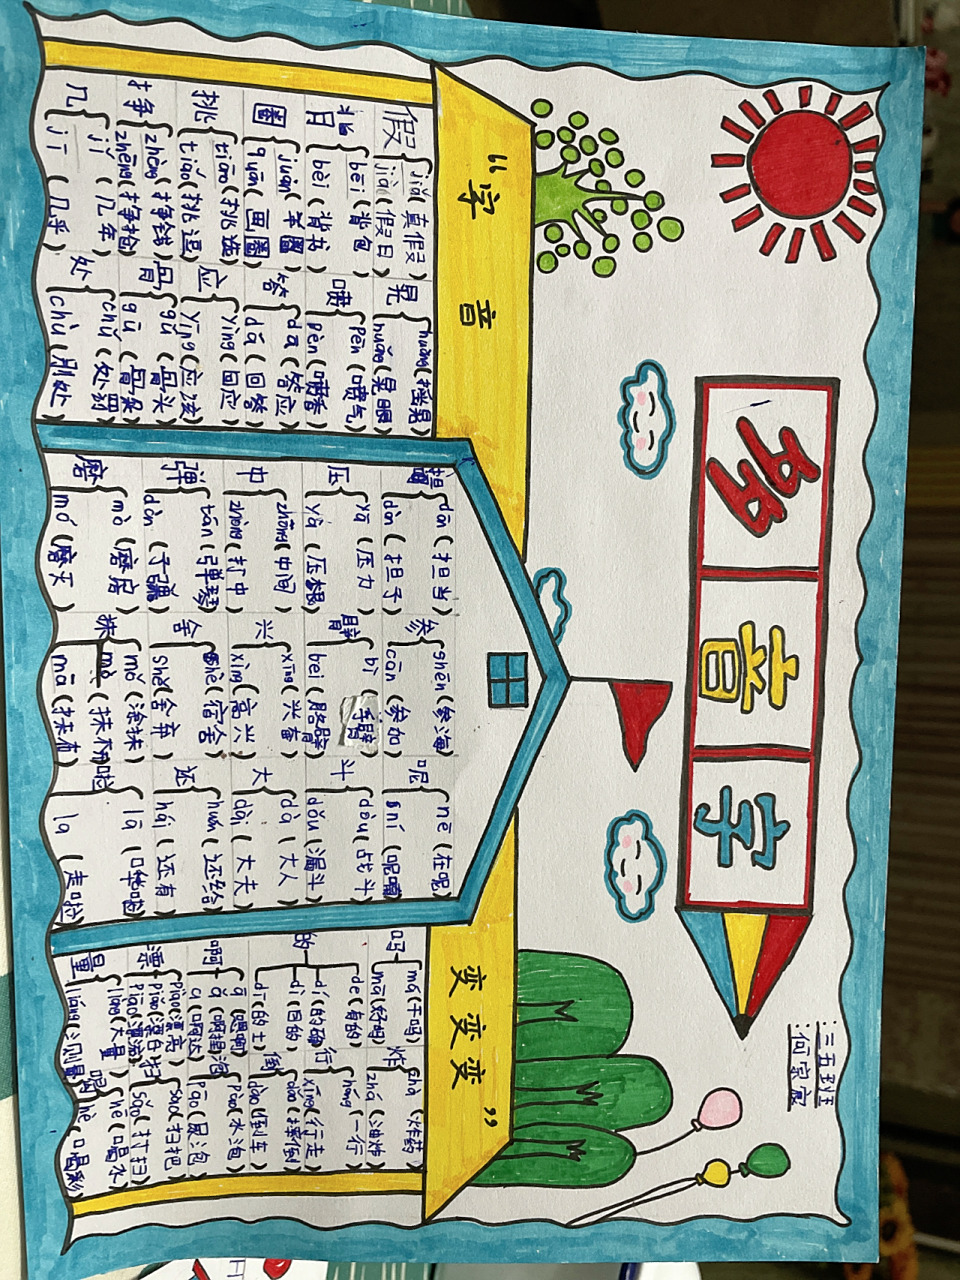 多音字
三五班
何家宽
“字音
变变变”
假 jiǎ(真假)
jià(假日)
背 bēi(背包)
bèi(背书)
圈 juàn(羊圈)
quān(画圈)
挑 tiāo(挑选)
tiǎo(挑逗)
挣 zhèng(挣钱)
zhēng(挣抢)
几 jǐ(几年)
jī(几乎)
晃 huàng(摇晃)
huǎng(晃眼)
喷 pēn(喷气)
pèn(喷香)
答 dā(答应)
dá(回答)
应 yìng(回应)
yīng(应该)
骨 gǔ(骨头)
gū(骨朵)
处 chǔ(处罚)
chù(别处)
担 dān(担当)
dàn(担子)
压 yā(压力)
yà(压根)
中 zhōng(中间)
zhòng(打中)
弹 tán(弹琴)
dàn(子弹)
磨 mò(磨房)
mó(磨灭)
参 shēn(参海)
cān(参加)
臂 bì(手臂)
bei(胳臂)
兴 xīng(兴奋)
xìng(高兴)
舍 shè(宿舍)
shě(舍弃)
抹 mǒ(涂抹)
mò(抹)
mā(抹布)
呢 nē(在呢)
ní(呢喃)
斗 dòu(战斗)
dǒu(漏斗)
大 dà(大人)
dài(大夫)
还 huán(还给)
hái(还有)
啦 lā(哗啦)
la(走啦)
吗 má(干吗)
mā(好吗)
的 de(有的)
dí(的确)
dì(目的)
dī(的士)
啊 ā(嗯啊)
漂 piào(漂亮)
piǎo(漂白)
piāo(漂流)
量 liàng(大量)
liáng(测量)
炸 zhà(炸药)
zhá(油炸)
行 háng(一行)
xíng(行走)
倒 dào(倒车)
dǎo(摔倒)
泡 pào(水泡)
pāo(尿泡)
扫 sào(扫把)
sǎo(打扫)
喝 hē(喝水)
hè(喝彩)